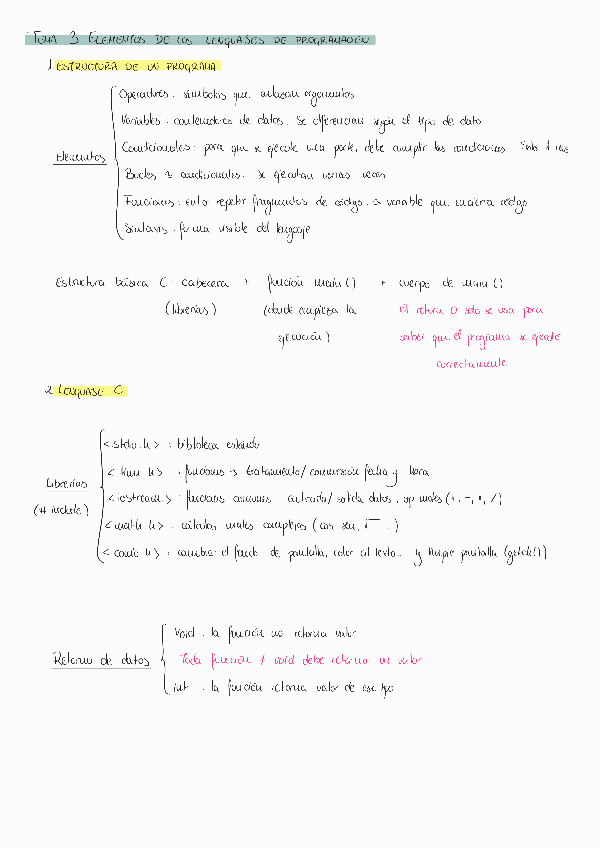 TEMA 3 ELEMENTOS DE LOS LENGUAJES DE PROGRAMACIÓN
1. ESTRUCTURA DE UN PROGRAMA
Elementos
Operadores: símbolos que enlazan argumentos
Variables: contenedores de datos. Se diferencian según el tipo de dato
Condicionales: para que se ejecute una parte, debe cumplir las condiciones. Solo 1 vez
Bucles ≈ condicionales. se ejecutan varias veces
Funciones: evita repetir fragmentos de código. ≈ variable que encierra código
Sintaxis: forma visible del lenguaje
Estructura básica C: cabecera + función main() + cuerpo de main()
(librerías) (donde empieza la El return 0 solo se usa para
ejecución) saber que el programa se ejecute
correctamente
2. LENGUAJE C
Librerías
(# include)
<stdio.h>: biblioteca estándar
<time.h>: funciones → tratamiento/conversión fecha y hora
<iostream>: funciones comunes - entrada/salida datos, op mates (+, -, *, /)
<math.h>: cálculos mates complejos (cos, sen, √ ...)
<conio.h>: cambiar el fondo de pantalla, color al texto... y limpie pantalla (getch())
Retorno de datos
Void: la función no retorna valor
Toda función ≠ void debe retornar un valor
int: la función retorna valor de ese tipo